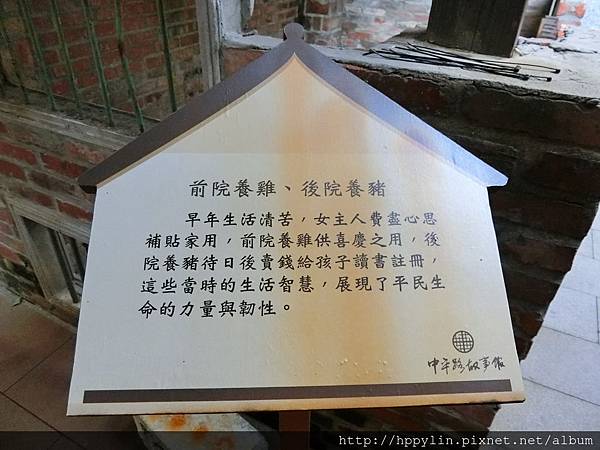 前院養雞、後院養豬
早年生活清苦，女主人費盡心思
補貼家用，前院養雞供喜慶之用，後
院養豬待日後賣錢給孩子讀書註冊，
這些當時的生活智慧，展現了平民生
命的力量與韌性。
中平路故事館
http://hppylin.pixnet.net/album